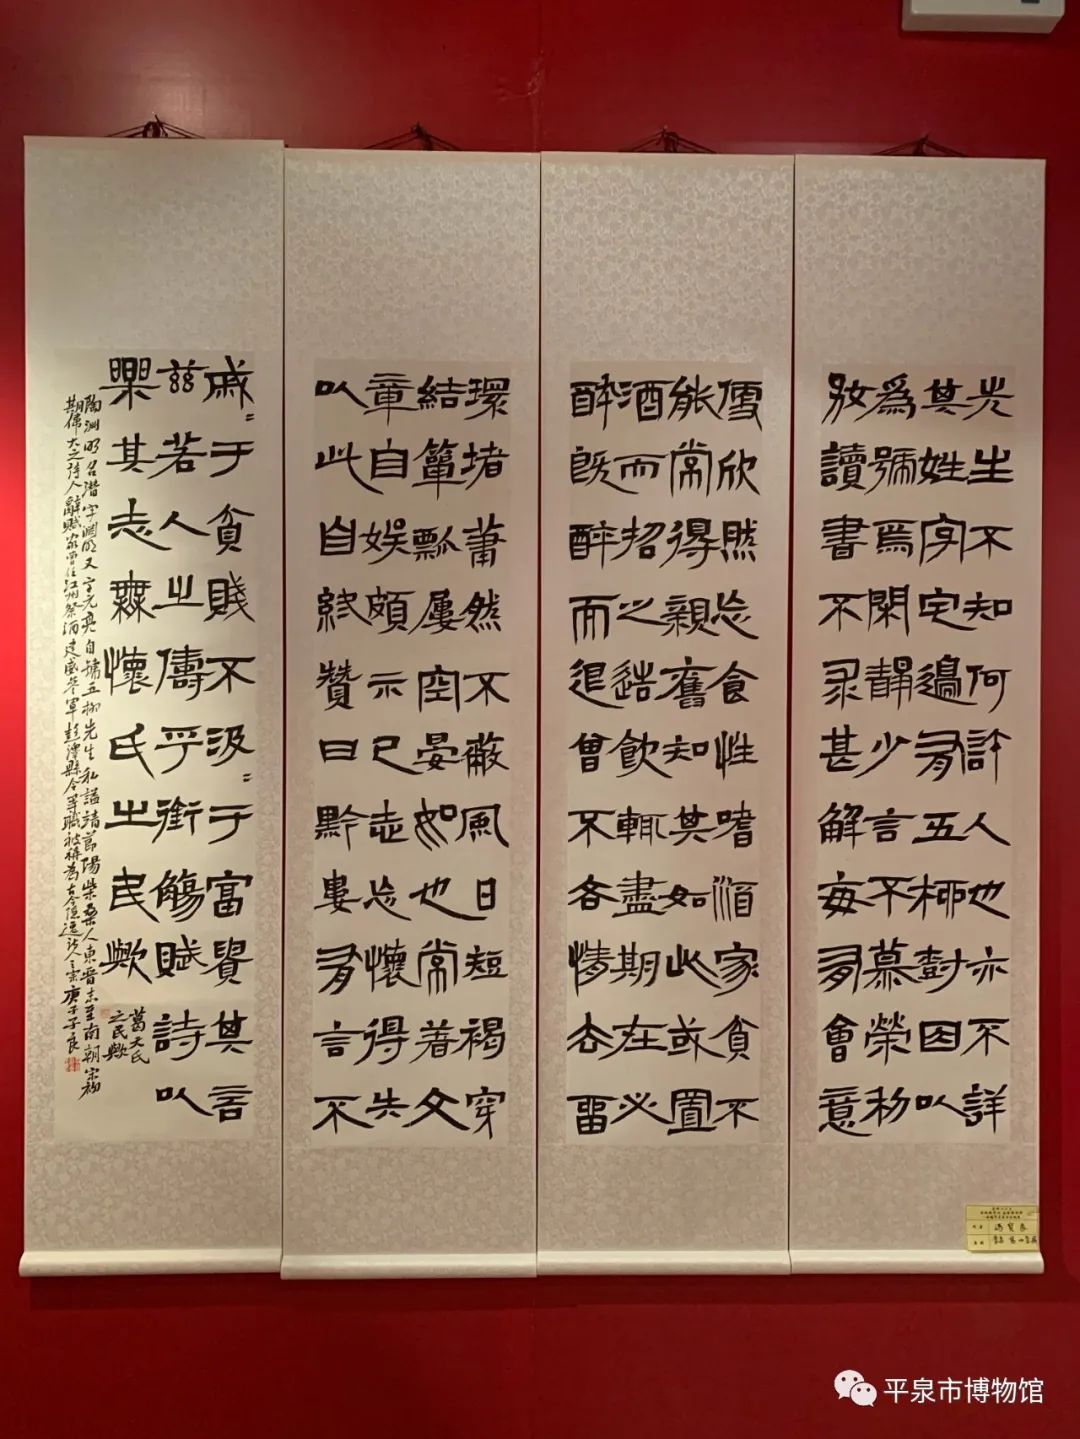 先生不知何許人也亦不詳
其姓字宅邊有五柳樹因以
為號焉閑靜少言不慕榮利
好讀書不求甚解每有會意
便欣然忘食性嗜酒家貧不
能常得親舊知其如此或置
酒而招之造飲輒盡期在必
醉既醉而退曾不吝情去留
環堵蕭然不蔽風日短褐穿
結簞瓢屢空晏如也常著文
章自娛頗示己志忘懷得失
以此自終贊曰黔婁有言不
戚〻于貧賤不汲〻于富貴其言
茲若人之儔乎銜觴賦詩以
樂其志無懷氏之民歟
葛天氏
之民歟
陶淵明名潛字淵明又字元亮自號五柳先生私謚靖節陽柴桑人東晉末至南朝宋初
期偉大之詩人辭賦家曾任江州祭酒建威參軍彭澤縣令等職被稱為古今隱逸詩人之宗庚子子良
平泉市博物馆